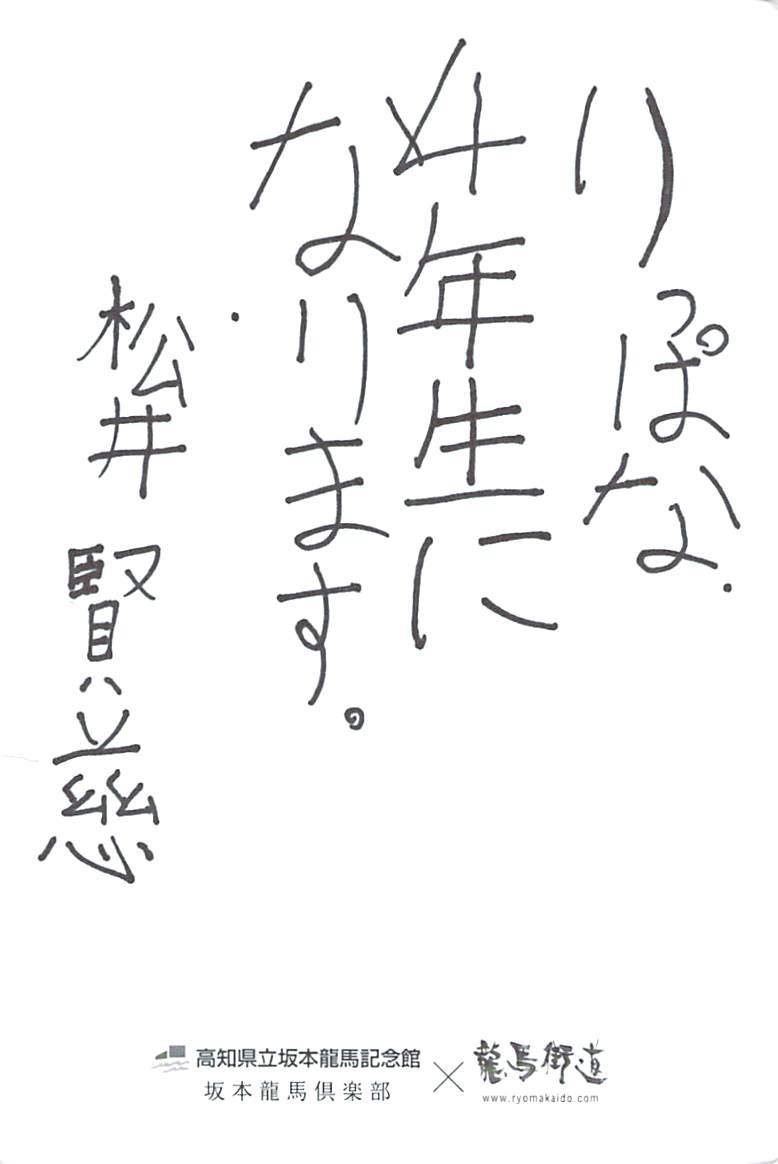 りっぱな
4年生に
なります。
松井 賢慈
高知県立坂本龍馬記念館
坂本龍馬倶楽部
×
龍馬街道
www.ryomakaido.com